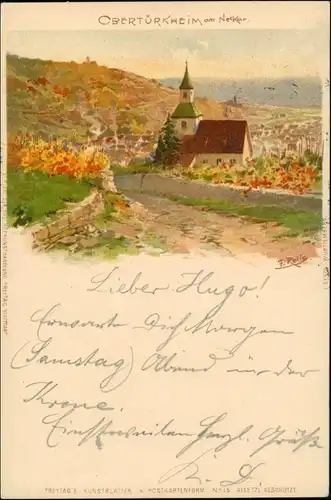 OBERTÜRKHEIM am Neckar.
F. Reiß
Lieber Hugo!
Erwarte Dich Morgen
(Samstag) Abend in der
Krone.
Einstweilen herzl. Grüße
K. D.
FREYTAG'S KUNSTBLÄTTER IN POSTKARTENFORM. GESETZL. GESCHÜTZT.